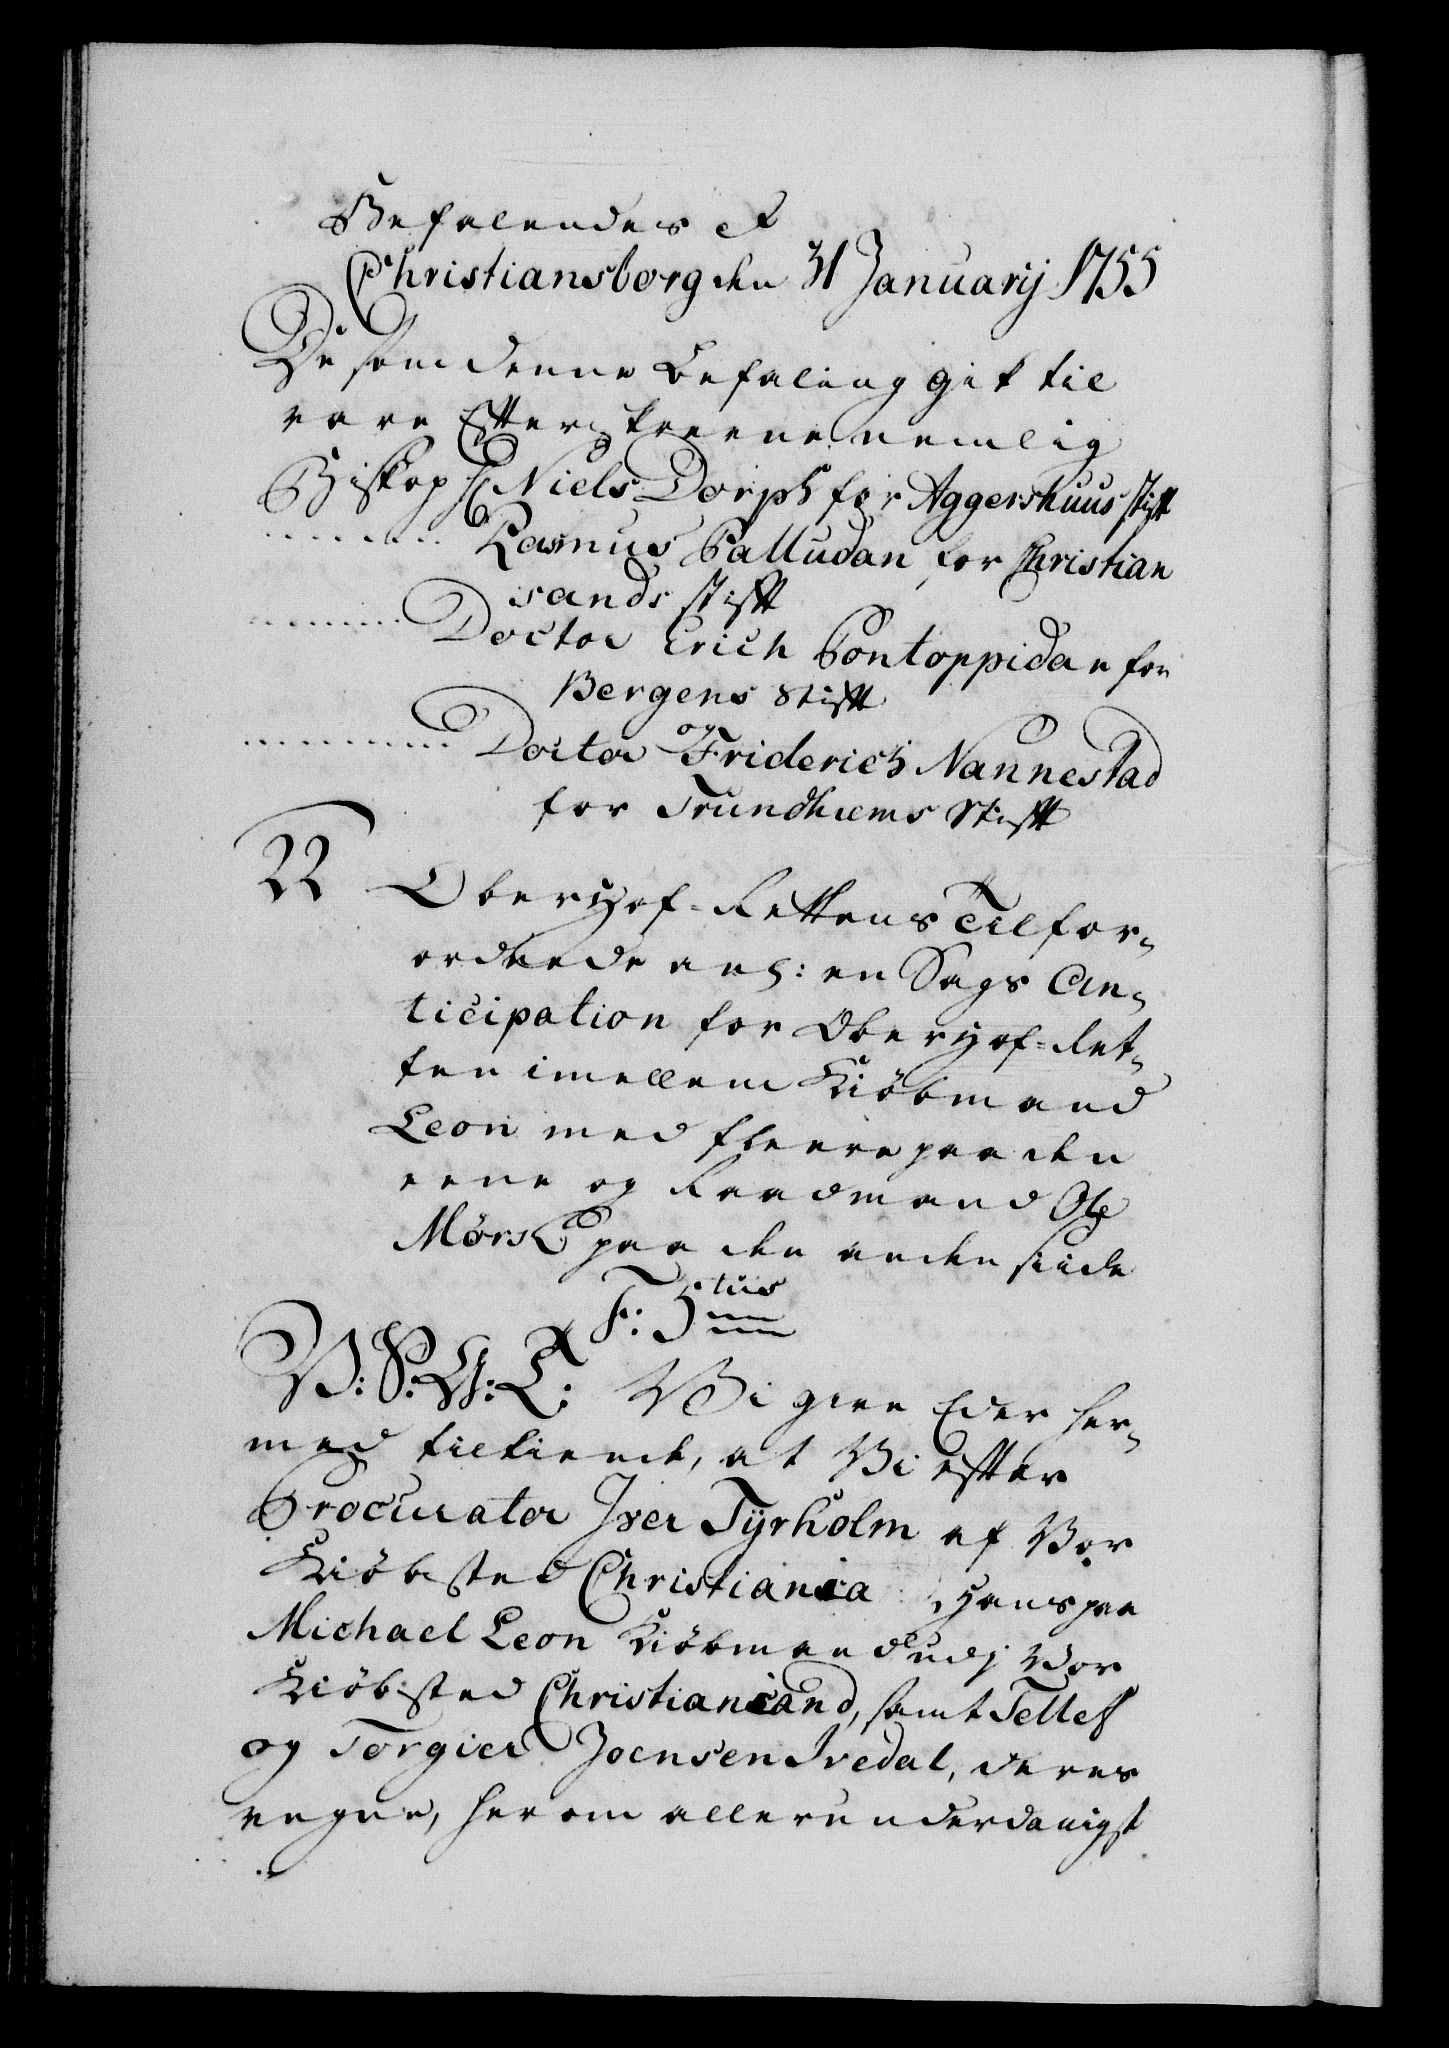 Befalendes &
Christiansborg den 31 Januarij 1755
De som denne Befaling gik til
vare Effterskrevne nemlig
Biskop Hr Niels Dorph for Aggershuus stift
........ Rasmus Palludan for Christian
sands stifft
........ Doctor Erich Pontoppidan for
Bergens Stifft
og
........ Doctor Friderich Nannestad
for Trundhiems Stifft
N OberHof-Rettens Tilfor¬
ordnede anl: en Sags An¬
ticipation for OberHof-Ret¬
ten imellem Kiöbmand
Leon med fleere paa den
eene og Raadmand Ole
Mörsk paa den anden siide
F: 5tus
V: S: G: T: Vi give Eder her¬
med tilkiende, at Vi effter
Procurator Iver Tÿrholm af Vor
Kiöbsted Christiania Hans paa
Michael Leon Kiöbmand udj Vor
Kiöbsted Christiansand, samt Tellef
og Torgier Joensen Ivedal, deres
vegne, herom allerunderdanigst